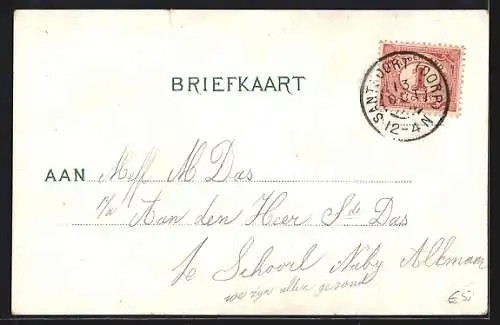 BRIEFKAART
SANTPOORT (DORP)
12-4N
AAN Mejf M Das
p/a Aan den Heer S de Das
te Schoorl Naby Alkmaar
we zyn allen gezond